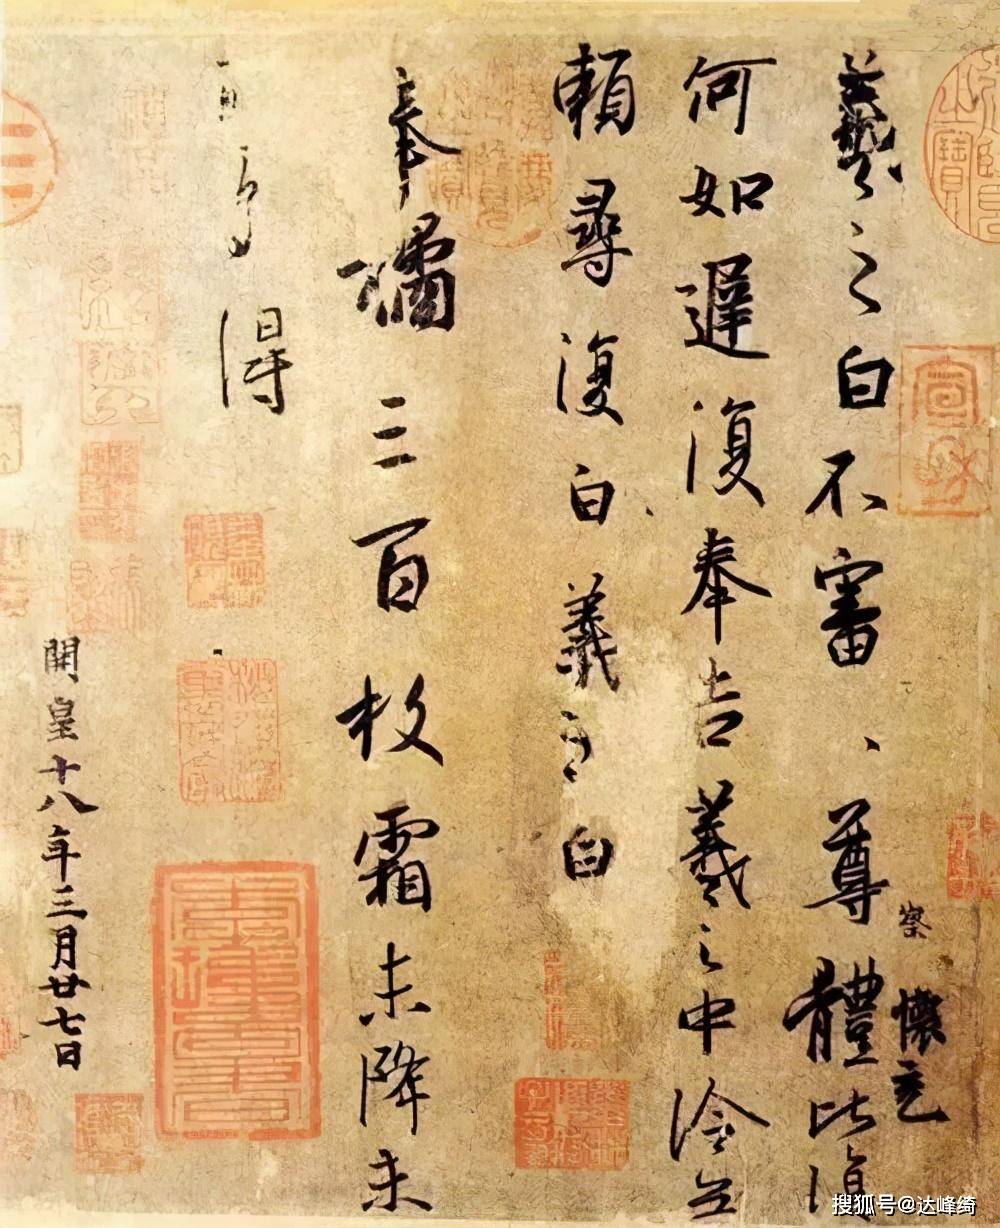 羲之白不審、尊體比復
何如遲復奉告羲之中冷無
賴尋復白、羲之白
奉橘三百枚霜未降未
可多得
察 懷充
開皇十八年三月廿七日
宣和
搜狐号@达峰绮